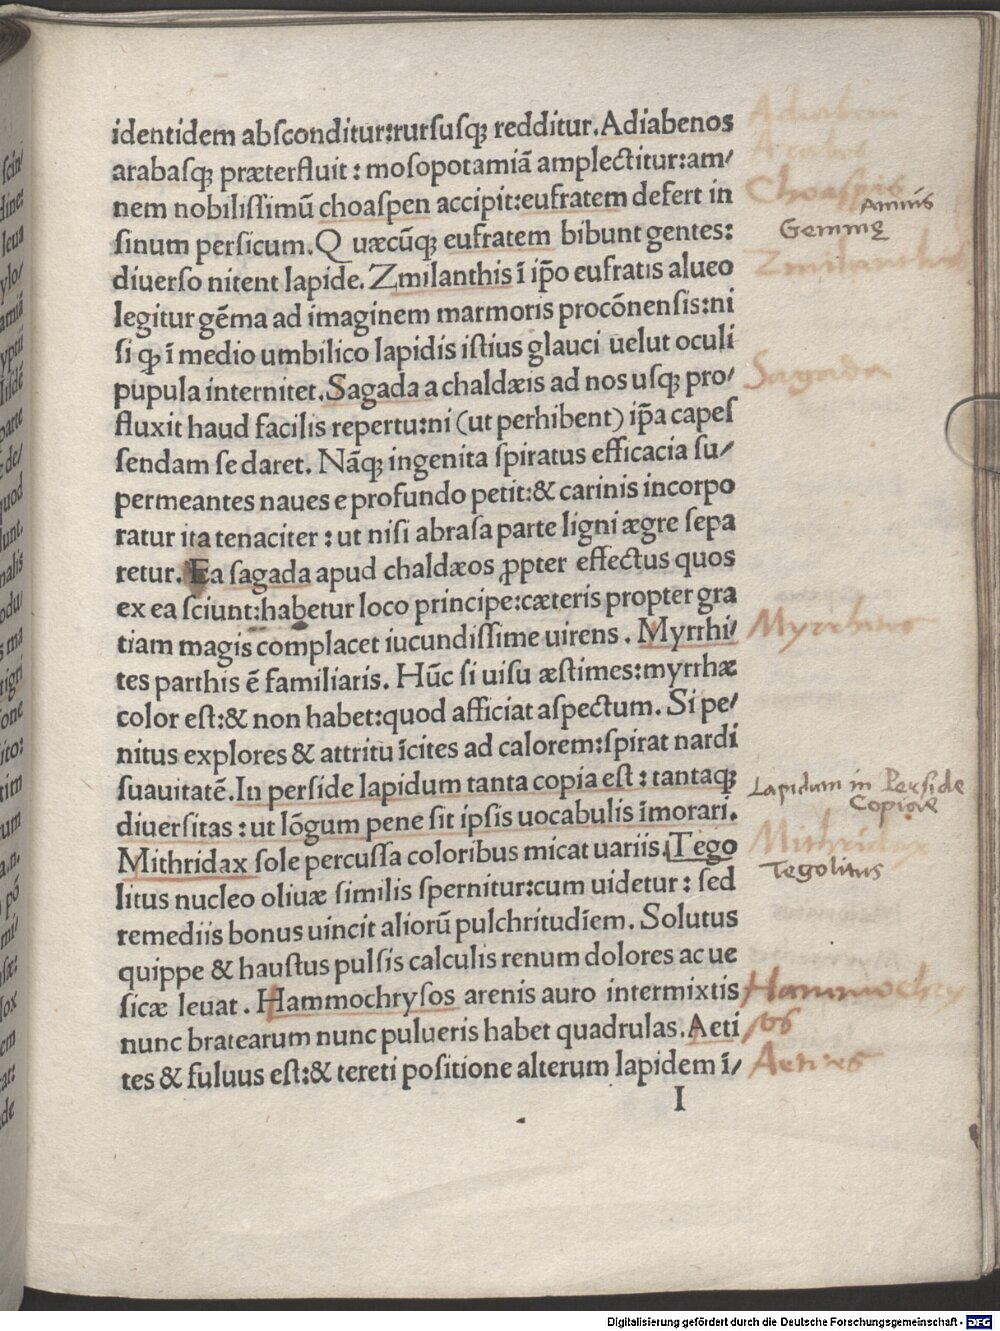 identidem abſconditur:rurſuſqꝫ redditur.Adiabenos
arabaſqꝫ præterfluit : moſopotamiā amplectitur:am/
nem nobiliſſimū choaſpen accipit:eufratem defert in
ſinum perſicum.Q uæcūqꝫ eufratem bibunt gentes:
diuerſo nitent lapide. Zmilanthis ī ip̄o eufratis alueo
legitur gēma ad imaginem marmoris procōnenſis:ni
ſi qꝙ ī medio umbilico lapidis iſtius glauci uelut oculi
pupula internitet.Sagada a chaldæis ad nos uſqꝫ pro/
fluxit haud facilis repertu:ni (ut perhibent) ip̄a capeſ
ſendam ſe daret. Nāqꝫ ingenita ſpiratus efficacia ſu/
permeantes naues e profundo petit:& carinis incorpo
ratur ita tenaciter : ut niſi abraſa parte ligni ægre ſepa
retur. Ea ſagada apud chaldæos ꝓpter effectus quos
ex ea ſciunt:habetur loco principe:cæteris propter gra
tiam magis complacet iucundiſſime uirens . Myrrhi/
tes parthis ē familiaris. Hūc ſi uiſu æſtimes:myrrhæ
color eſt:& non habet:quod afficiat aſpectum. Si pe/
nitus explores & attritu īcites ad calorem:ſpirat nardi
ſuauitatē.In perſide lapidum tanta copia eſt : tantaqꝫ
diuerſitas : ut lōgum pene ſit ipſis uocabulis īmorari.
Mithridax ſole percuſſa coloribus micat uariis.Tego
litus nucleo oliuæ ſimilis ſpernitur:cum uidetur : ſed
remediis bonus uincit aliorū pulchritudīem. Solutus
quippe & hauſtus pulſis calculis renum dolores ac ue
ſicæ leuat . Hammochryſos arenis auro intermixtis
nunc bratearum nunc pulueris habet quadrulas.Aeti
tes & fuluus eſt:& tereti poſitione alterum lapidem ī/
I
Choaſpis
Amnis
Gemmę
Zmilanthis
Sagada
Myrrhites
Lapidum in Perſide
Copiae
Mithridax
Tegolitus
Hammochry
sos
Aetites
Digitalisierung gefördert durch die Deutsche Forschungsgemeinschaft - DFG